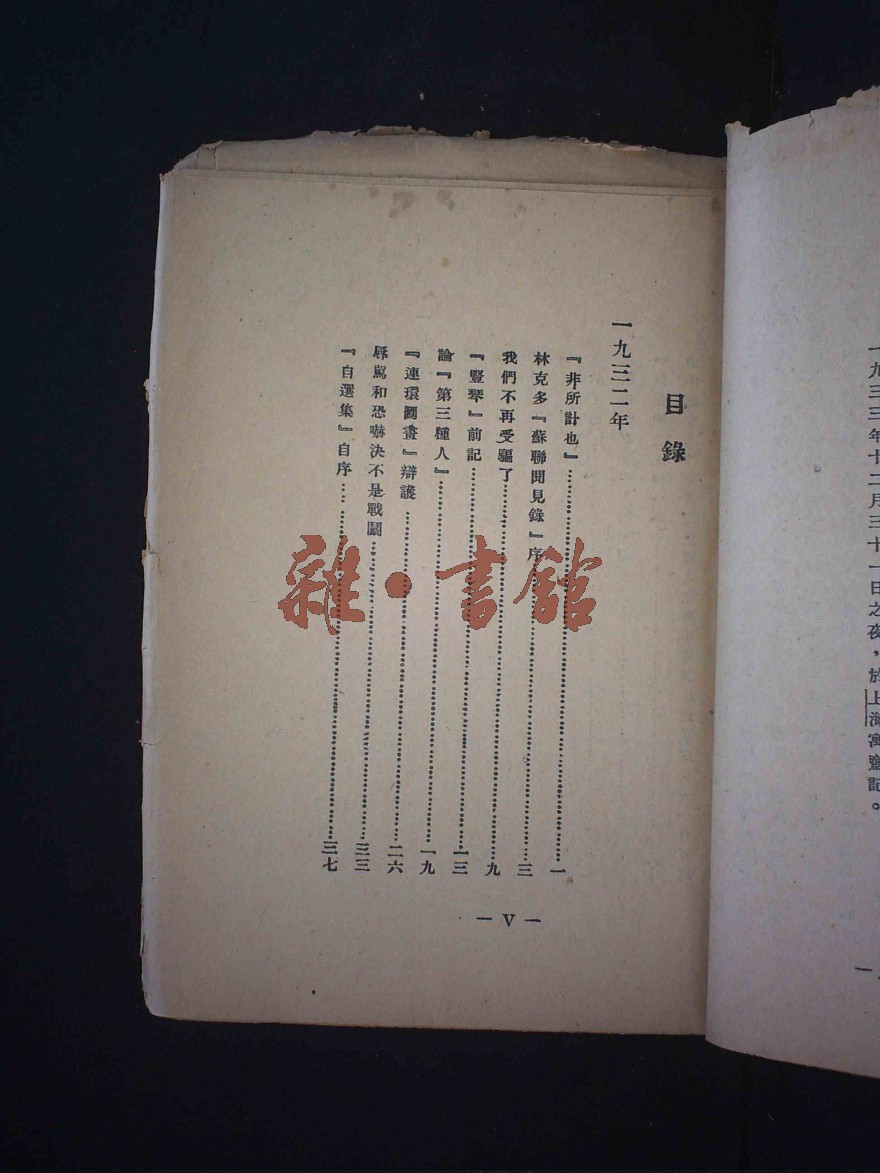 一九三三年十二月三十一日之夜，於上海寓齋記。
目錄
一九三二年
『非所計也』……一
林克多『蘇聯聞見錄』序……三
我們不再受騙了……九
『豎琴』前記……一三
論『第三種人』……一九
『連環圖畫』辯護……二六
辱罵和恐嚇決不是戰鬭……三三
『自選集』自序……三七
— V —
雜·書館